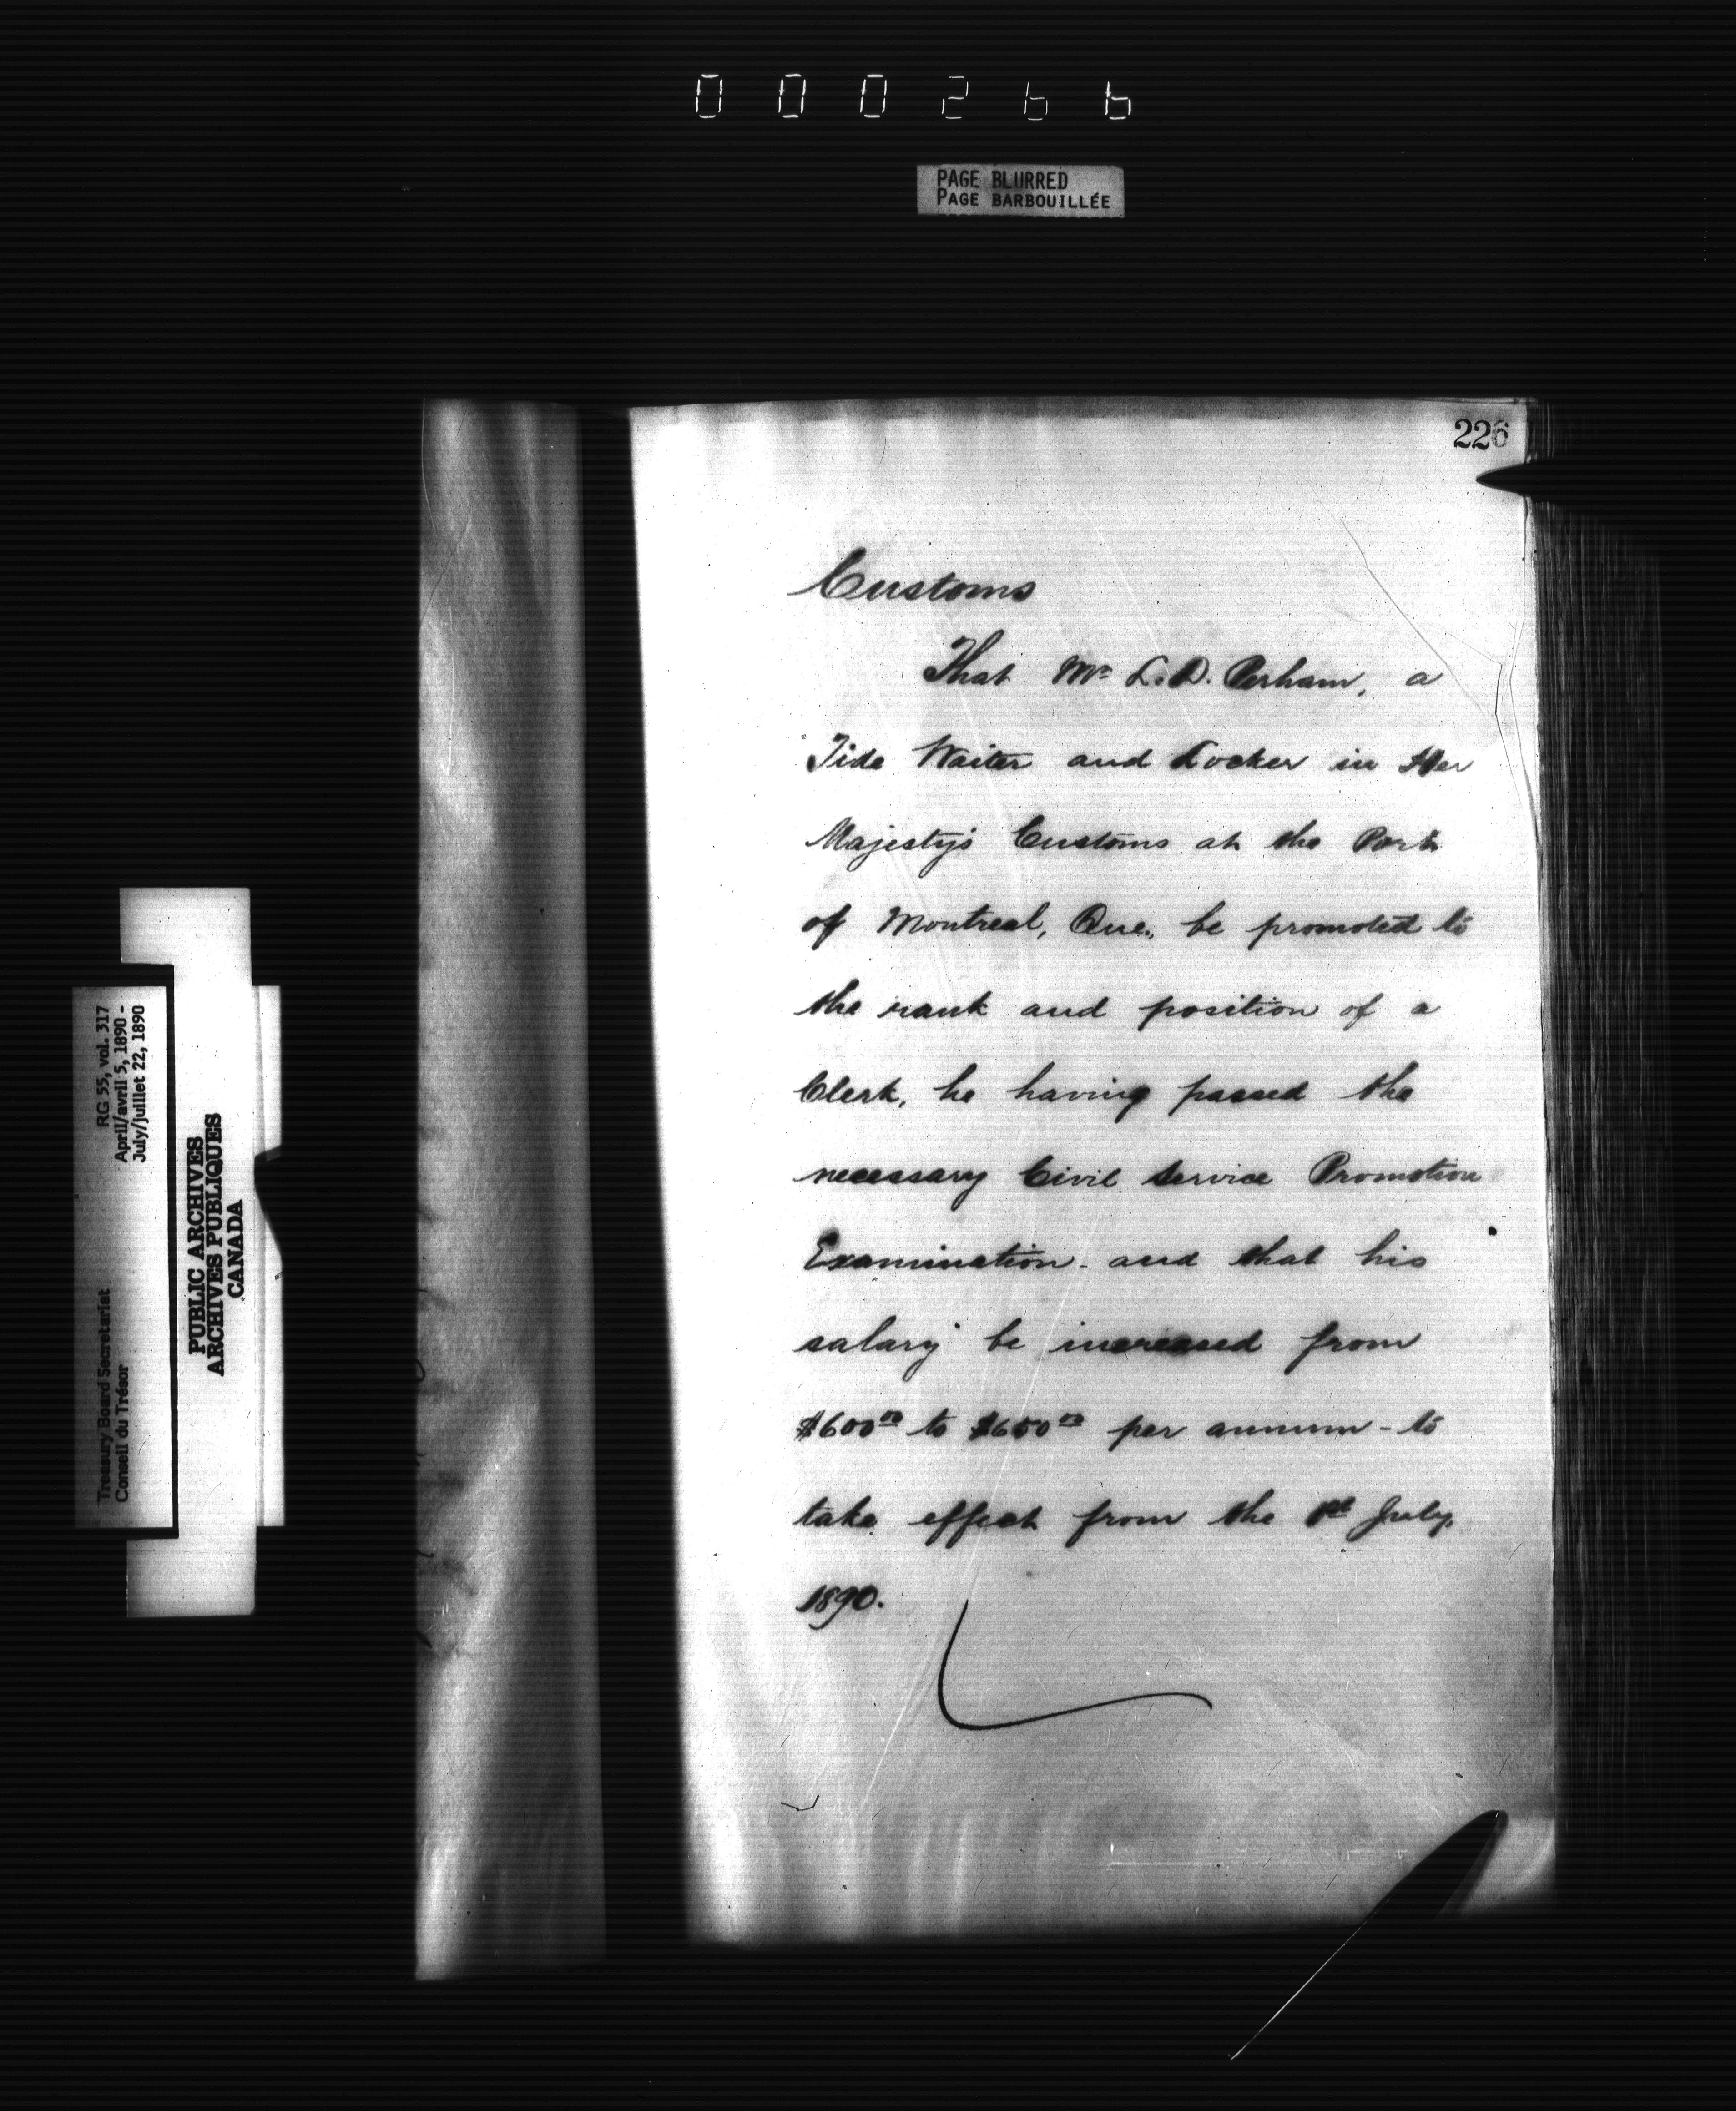 000266
PAGE BLURRED
PAGE BARBOUILLÉE
226
Customs
That Mr. L. D. Perham, a
Tide Waiter and Locker in Her
Majesty's Customs at the Port
of Montreal, Que., be promoted to
the rank and position of a
Clerk, he having passed the
necessary Civil Service Promotion
Examination - and that his
salary be increased from
$600.00 to $650.00 per annum - to
take effect from the 1st July,
1890.
RG 55, vol. 317
April/avril 5, 1890 -
July/juillet 22, 1890
Treasury Board Secretariat
Conseil du Trésor
PUBLIC ARCHIVES
ARCHIVES PUBLIQUES
CANADA